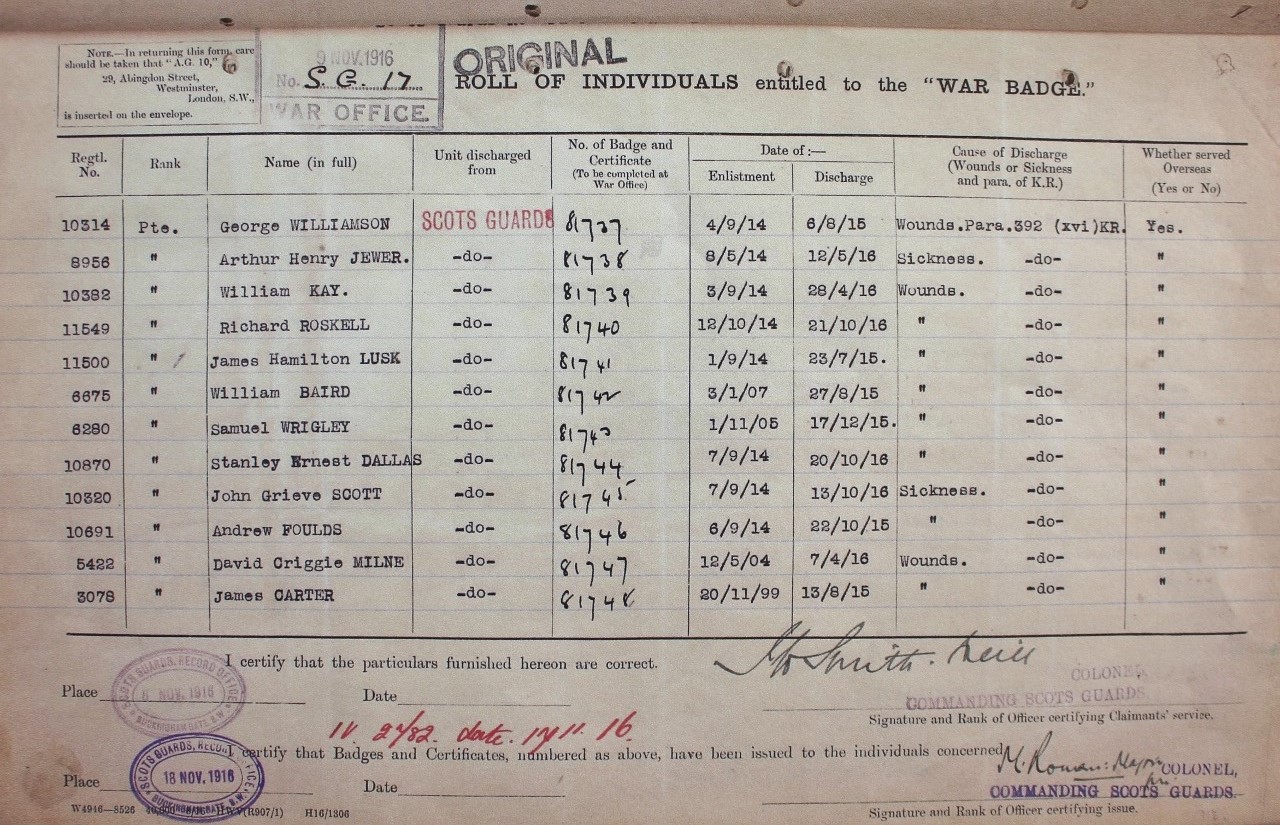 NOTE.—In returning this form, care
should be taken that "A.G. 10,"
29, Abingdon Street,
Westminster,
London, S.W.,
is inserted on the envelope.
9 NOV. 1916
No. S.G. 17
WAR OFFICE.
ORIGINAL
ROLL OF INDIVIDUALS entitled to the "WAR BADGE."
Regtl. No. Rank Name (in full) Unit discharged from No. of Badge and Certificate (To be completed at War Office) Date of:— Enlistment Discharge Cause of Discharge (Wounds or Sickness and para. of K.R.) Whether served Overseas (Yes or No)
10314 Pte. George WILLIAMSON SCOTS GUARDS 81737 4/9/14 6/8/15 Wounds.Para.392 (xvi)KR. Yes.
8956 " Arthur Henry JEWER. -do- 81738 8/5/14 12/5/16 Sickness. -do- "
10382 " William KAY. -do- 81739 3/9/14 28/4/16 Wounds. -do- "
11549 " Richard ROSKELL -do- 81740 12/10/14 21/10/16 " -do- "
11500 " James Hamilton LUSK -do- 81741 1/9/14 23/7/15. " -do- "
6675 " William BAIRD -do- 81742 3/1/07 27/8/15 " -do- "
6280 " Samuel WRIGLEY -do- 81743 1/11/05 17/12/15. " -do- "
10870 " Stanley Ernest DALLAS -do- 81744 7/9/14 20/10/16 " -do- "
10320 " John Grieve SCOTT -do- 81745 7/9/14 13/10/16 Sickness. -do- "
10691 " Andrew FOULDS -do- 81746 6/9/14 22/10/15 " -do- "
5422 " David Criggie MILNE -do- 81747 12/5/04 7/4/16 Wounds. -do- "
3078 " James CARTER -do- 81748 20/11/99 13/8/15 " -do- "
I certify that the particulars furnished hereon are correct.
Smith. Neill
COLONEL,
COMMANDING SCOTS GUARDS
Place
SCOTS GUARDS, RECORD OFFICE
8 NOV. 1916
BUCKINGHAM GATE, S.W.
Date
Signature and Rank of Officer certifying Claimants' service.
date. 17.11.16.
I certify that Badges and Certificates, numbered as above, have been issued to the individuals concerned
Place
SCOTS GUARDS, RECORD OFFICE,
18 NOV. 1916
BUCKINGHAM GATE, S.W.
Date
Major
COLONEL,
COMMANDING SCOTS GUARDS.
Signature and Rank of Officer certifying issue.
W4916—8526 H W V(R907/1) H16/1306